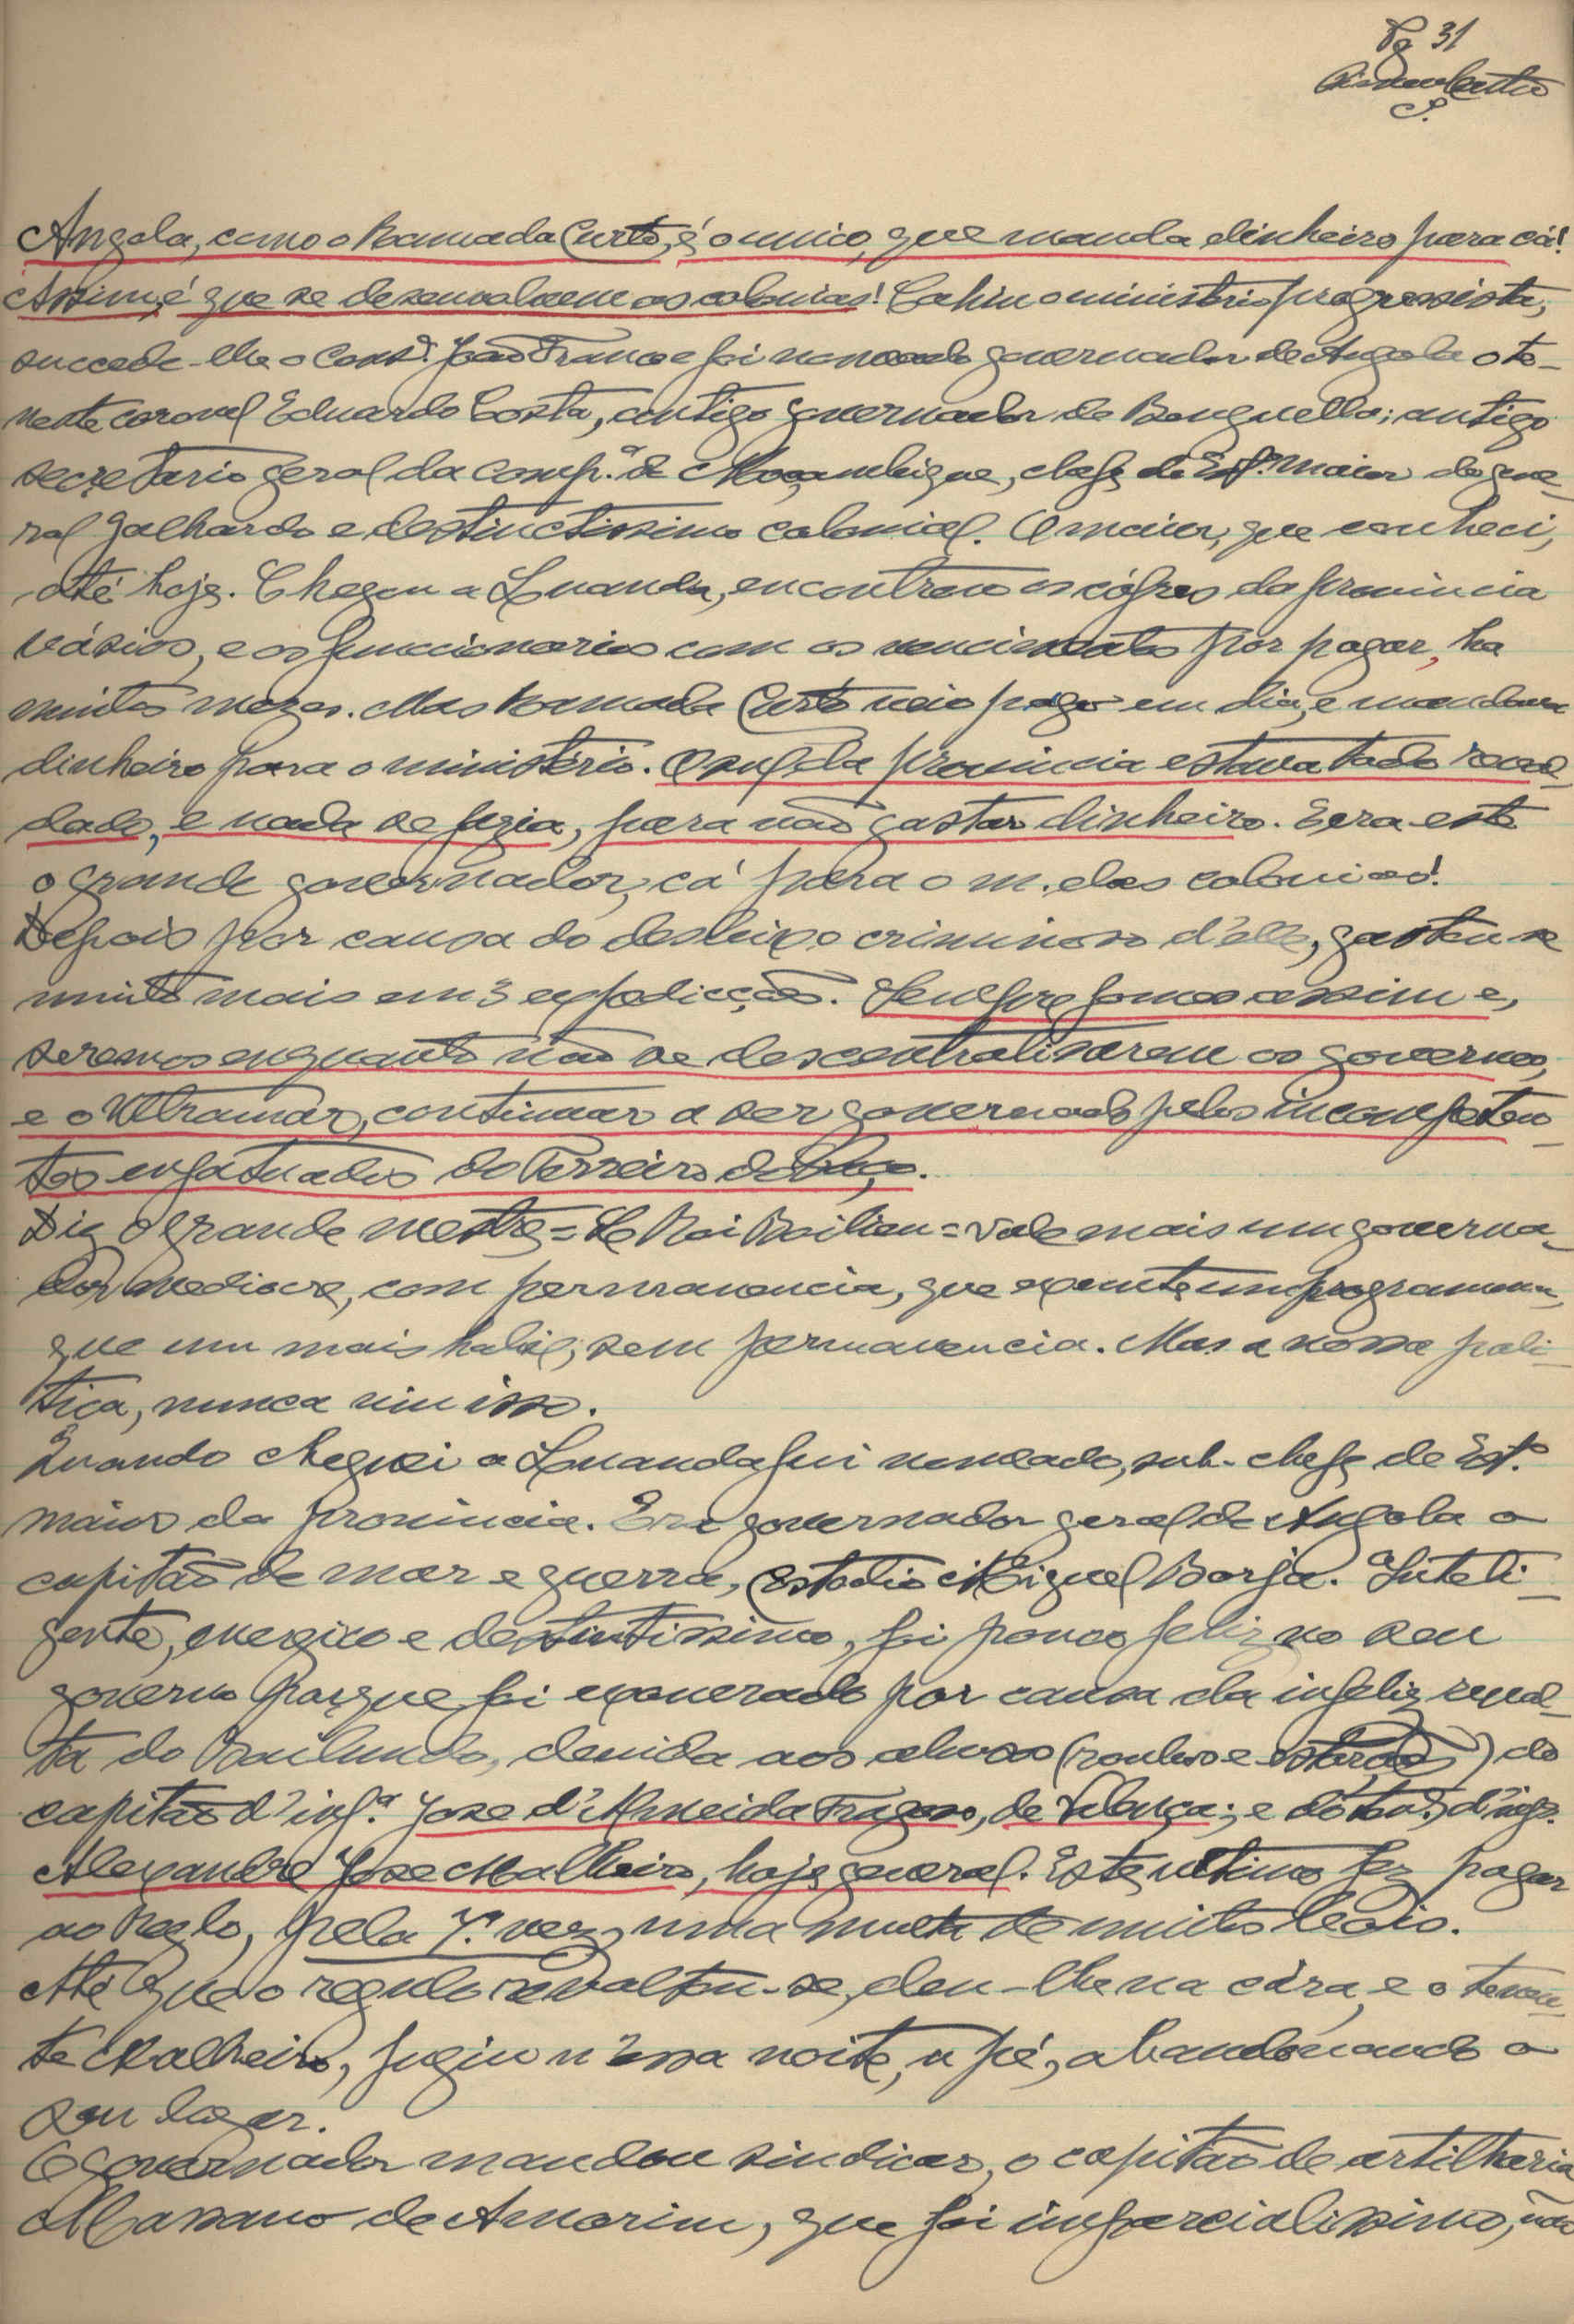 Pg 31
Angola, como o Ramada Curto, é o unico, que manda dinheiro para cá!
Assim, é que se desenvolvem as colonias! Cahiu o ministério progressista,
succede-lhe o Consº. João Franco e foi nomeado governador de Angola o te-
nente coronel Eduardo Costa, antigo governador de Benguella; antigo
secretario geral da Comp.ª de Moçambique, chefe do Estº. maior do gene-
ral Galhardo e destinctissimo colonial. O maior, que conheci,
até hoje. Chegou a Luanda, encontrou os cófres da provincia
vásios, e os funccionarios com os vencimentos por pagar, ha
muitos mezes. Mas Ramada Curto veio pago em dia, e mandava
dinheiro para o ministério. O sul da provincia estava todo revol-
tado, e nada se fazia, para não gastar dinheiro. Era este
o grande governador, cá para o m. das colonias!
Depois por causa do desleixo criminoso d'elle, gastou-se
muito mais em 3 expedicções. Sempre fomos assim e,
seremos enquanto não se descentralisarem os governos,
e o Ultramar, continuar a ser governado pelos incompeten-
tes enfatuados do Terreiro do Paço.
Diz o grande mestre = Le Roi Boilieu = vale mais um governa-
dor mediocre, com permanencia, que execute um programma,
que um mais habil, sem permanencia. Mas a nossa poli-
tica, nunca viu isso.
Quando cheguei a Luanda fui nomeado, sub-chefe de Estº.
maior da provincia. Era governador geral de Angola o
capitão de mar e guerra, Custodio Miguel Borja. Inteli-
gente, energico e destintissimo, foi pouco feliz no seu
governo porque foi exonerado por causa da infeliz revol-
ta do Bailundo, devida aos abusos (roubos e extorsões) do
capitão d'infª. Jose d'Almeida Fragoso, de Valença; e do tenº. d'infª.
Alexandre Jose Malheiro, hoje general. Este ultimo fez pagar
ao Reglo, pela 7ª. vez, uma multa de muitos bois.
Até que o regulo revoltou-se, deu-lhe na cára, e o tenen-
te Malheiro, fugiu n'essa noite, a pé, abandonando o
seu lugar.
O governador mandou sindicar, o capitão de artilharia
Massano de Amorim, que foi imparcialissimo, não